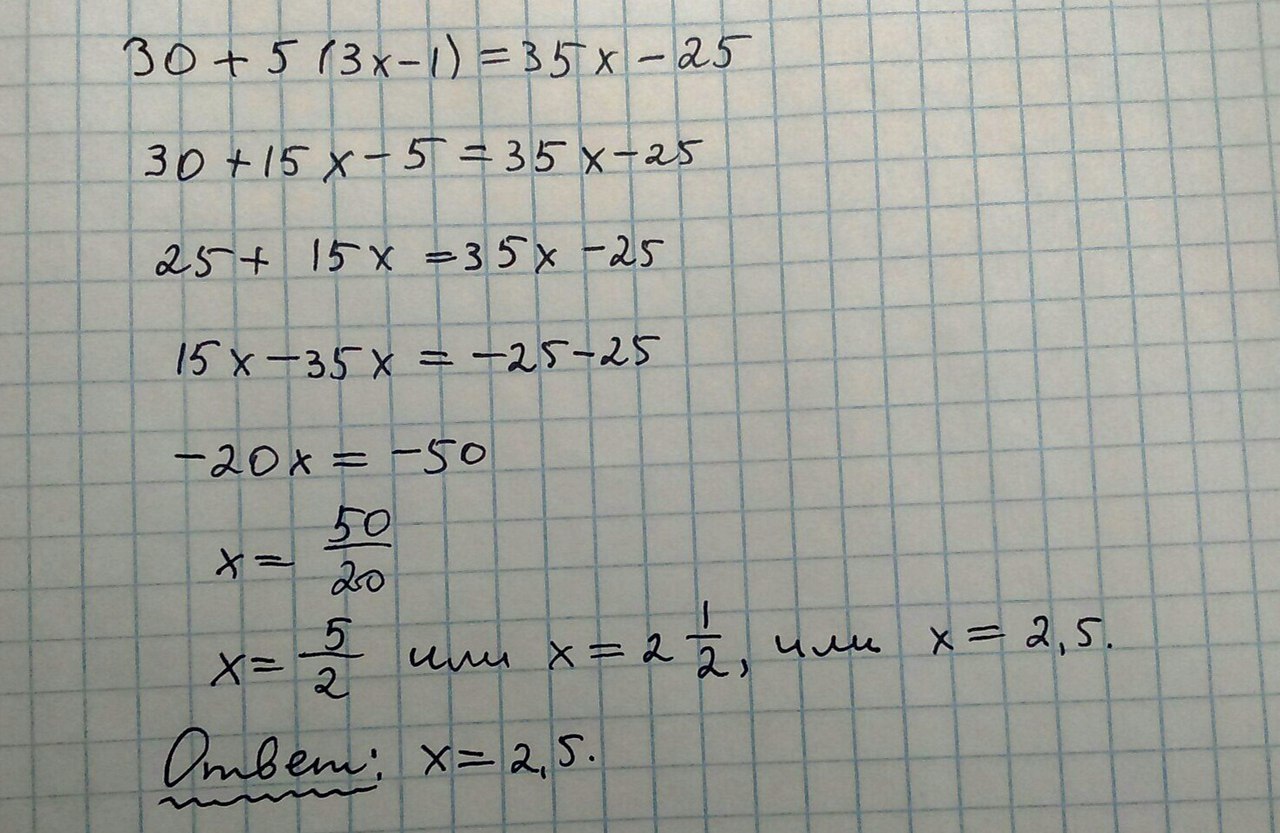 30 + 5 (3x - 1) = 35x - 25
30 + 15x - 5 = 35x - 25
25 + 15x = 35x - 25
15x - 35x = -25 - 25
-20x = -50
x = 50/20
x = 5/2 или x = 2 1/2, или x = 2,5.
Ответ: x = 2,5.